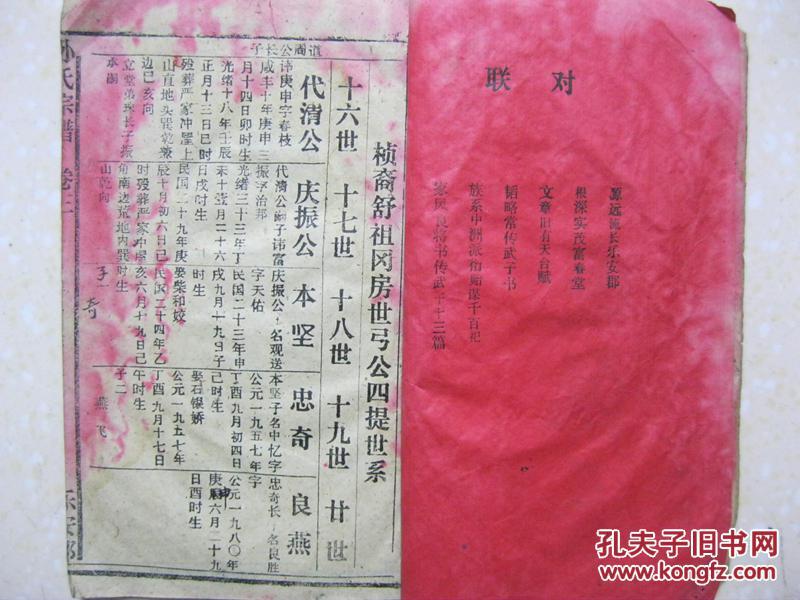 对联
源远流长乐安郡
根深实茂富春堂
文章旧有天台赋
韬略常传武子书
族系中洲派衍贻谋千百祀
家风良将书传武子十三篇
桢裔舒祖冈房世弓公四提世系
十六世 十七世 十八世 十九世 廿世
代渭公 庆振公 本坚 忠奇 良燕
道周公长子
讳庚申字春枝
咸丰十年庚申三
月十四日卯时生
光绪十八年壬辰
正月十三日巳时
殁葬严家冲屋上
山直地头巽乾兼
边巳亥向
立堂弟珠长子振
本嗣
代渭公嗣子讳富
振字治邦
光绪三十三年丁
未十一月二十六
日戌时生
民国二十九年庚
辰十月初六日己
时殁葬严家冲屋
旬南边荒地内巽
山乾向
庆振公一名观送
字天佑
民国二十三年申
戌九月十九日子
时生
娶柴和姣
民国二十四年乙
亥六月十九日己
时生
子一 奇
本坚子名中忆字
公元一九五七年
丁酉九月初四日
己时生
娶石银娇
公元一九五七年
丁酉九月十七日
午时生
子二 燕 飞
忠奇长子名良胜
字
公元一九八〇年
庚申六月二十九
日酉时生
孙氏宗谱 卷三
乐安郡
孔夫子旧书网
www.kongfz.com